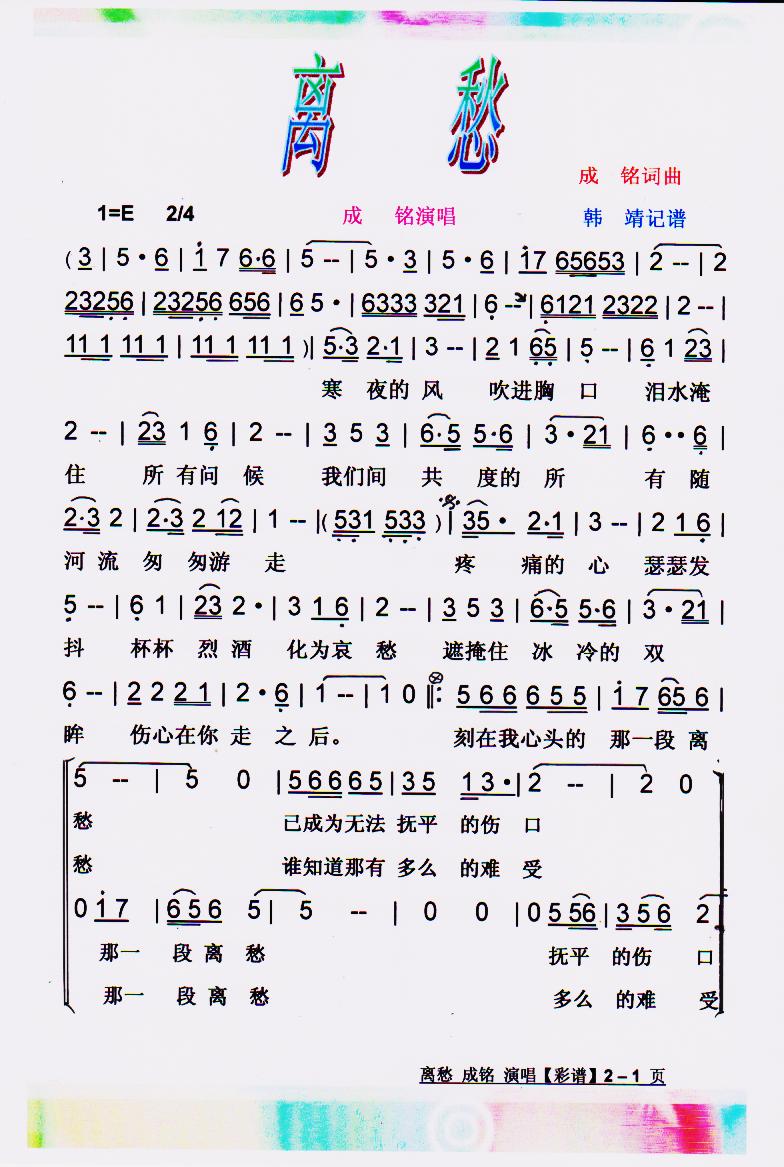 离 愁
成 铭词曲
1=E 2/4 成 铭演唱 韩 靖记谱
( 3 | 5 · 6 | 1 7 6·6 | 5 -- | 5 · 3 | 5 · 6 | 17 65653 | 2 -- | 2
23256 | 23256 656 | 6 5 · | 6333 321 | 6 -- | 6121 2322 | 2 -- |
11 1 11 1 | 11 1 11 1 )| 5·3 2·1 | 3 -- | 2 1 65 | 5 -- | 6 1 23 |
寒 夜的 风 吹进胸 口 泪水淹
2 -- | 23 1 6 | 2 -- | 3 5 3 | 6·5 5·6 | 3 · 21 | 6 ·· 6 |
住 所有问 候 我们间 共 度的 所 有 随
2·3 2 | 2·3 2 12 | 1 -- |( 531 533 )| 35 · 2·1 | 3 -- | 2 1 6 |
河 流 匆 匆游 走 疼 痛的 心 瑟瑟发
5 -- | 6 1 | 23 2 · | 3 1 6 | 2 -- | 3 5 3 | 6·5 5·6 | 3 · 21 |
抖 杯杯 烈 酒 化为哀 愁 遮掩住 冰 冷的 双
6 -- | 2 2 2 1 | 2 · 6 | 1 -- | 1 0 ‖: 5 6 6 6 5 5 | 1 7 65 6 |
眸 伤心在你 走 之 后。 刻在我心头的 那一段 离
5 -- | 5 0 | 5 6 6 6 5 | 3 5 1 3 · | 2 -- | 2 0
愁 已成为无法 抚平 的伤 口
愁 谁知道那有 多么 的难 受
0 1 7 | 6 5 6 5 | 5 -- | 0 0 | 0 5 56 | 3 5 6 2
那一 段 离 愁 抚平 的伤 口
那一 段 离 愁 多么 的难 受
离愁 成铭 演唱【彩谱】2－1 页